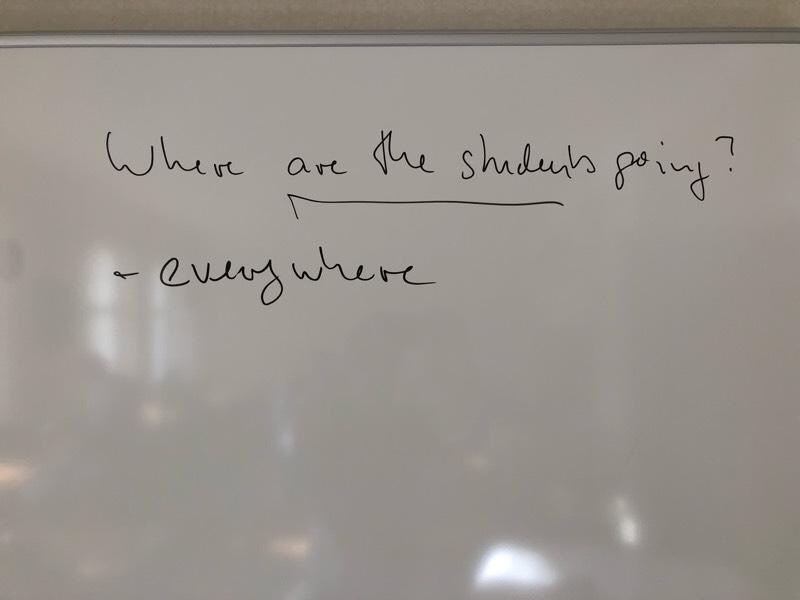 Where are the students going?
- everywhere